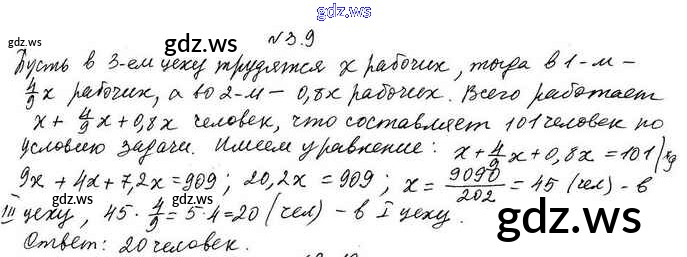 gdz.ws
№3.9
gdz.ws gdz.ws
Пусть в 3-ем цеху трудятся x рабочих, тогда в 1-м –
4/9 x рабочих, а во 2-м – 0,8x рабочих. Всего работает
x + 4/9 x + 0,8x человек, что составляет 101 человек по
условию задачи. Имеем уравнение: x + 4/9 x + 0,8x = 101 |·9
9x + 4x + 7,2x = 909; 20,2x = 909; x = 9090/202 = 45 (чел) – в
III цеху, 45 · 4/9 = 5·4 = 20 (чел) – в I цеху.
Ответ: 20 человек.
gdz.ws gdz.ws